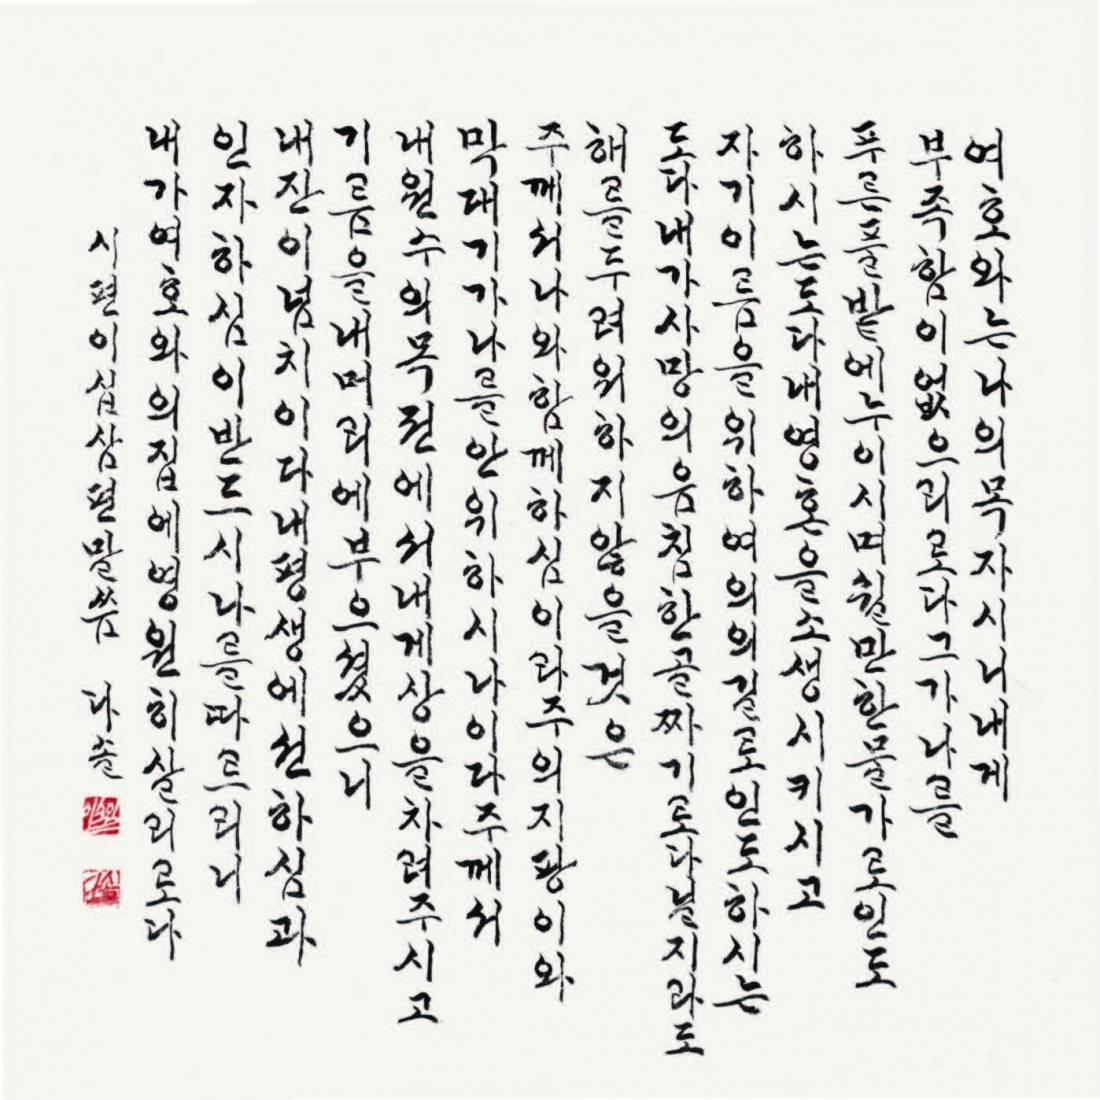 여호와는나의목자시니내게
부족함이없으리로다그가나를
푸른풀밭에누이시며쉴만한물가로인도
하시는도다내영혼을소생시키시고
자기이름을위하여의의길로인도하시는
도다내가사망의음침한골짜기로다닐지라도
해를두려워하지않을것은
주께서나와함께하심이라주의지팡이와
막대기가나를안위하시나이다주께서
내원수의목전에서내게상을차려주시고
기름을내머리에부으셨으니
내잔이넘치이다내평생에선하심과
인자하심이반드시나를따르리니
내가여호와의집에영원히살리로다
시편이십삼편말씀 다솔